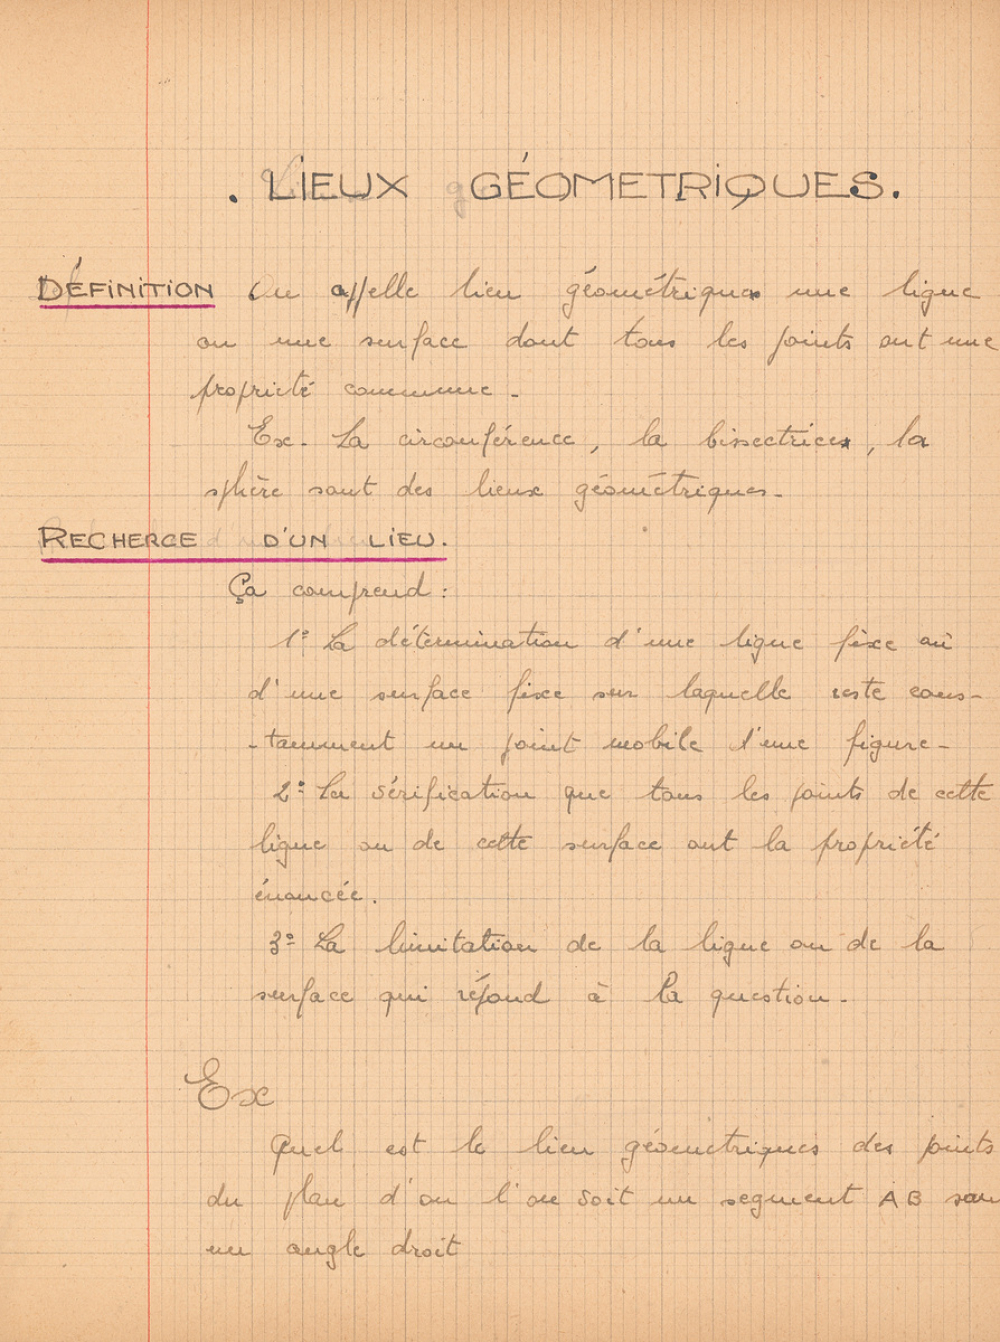 . LIEUX GÉOMETRIQUES.
DÉFINITION On appelle lieu géométrique une ligne
ou une surface dont tous les points ont une
propriété commune.
Ex. La circonférence, la bissectrice, la
sphère sont des lieux géométriques.
RECHERCE D'UN LIEU.
Ça comprend :
1º La détermination d'une ligne fixe ou
d'une surface fixe sur laquelle reste cons-
-tamment un point mobile d'une figure.
2º La vérification que tous les points de cette
ligne ou de cette surface ont la propriété
énoncée.
3º La limitation de la ligne ou de la
surface qui répond à la question.
Ex
Quel est le lieu géométriques des points
du plan d'ou l'on voit un segment AB sous
un angle droit